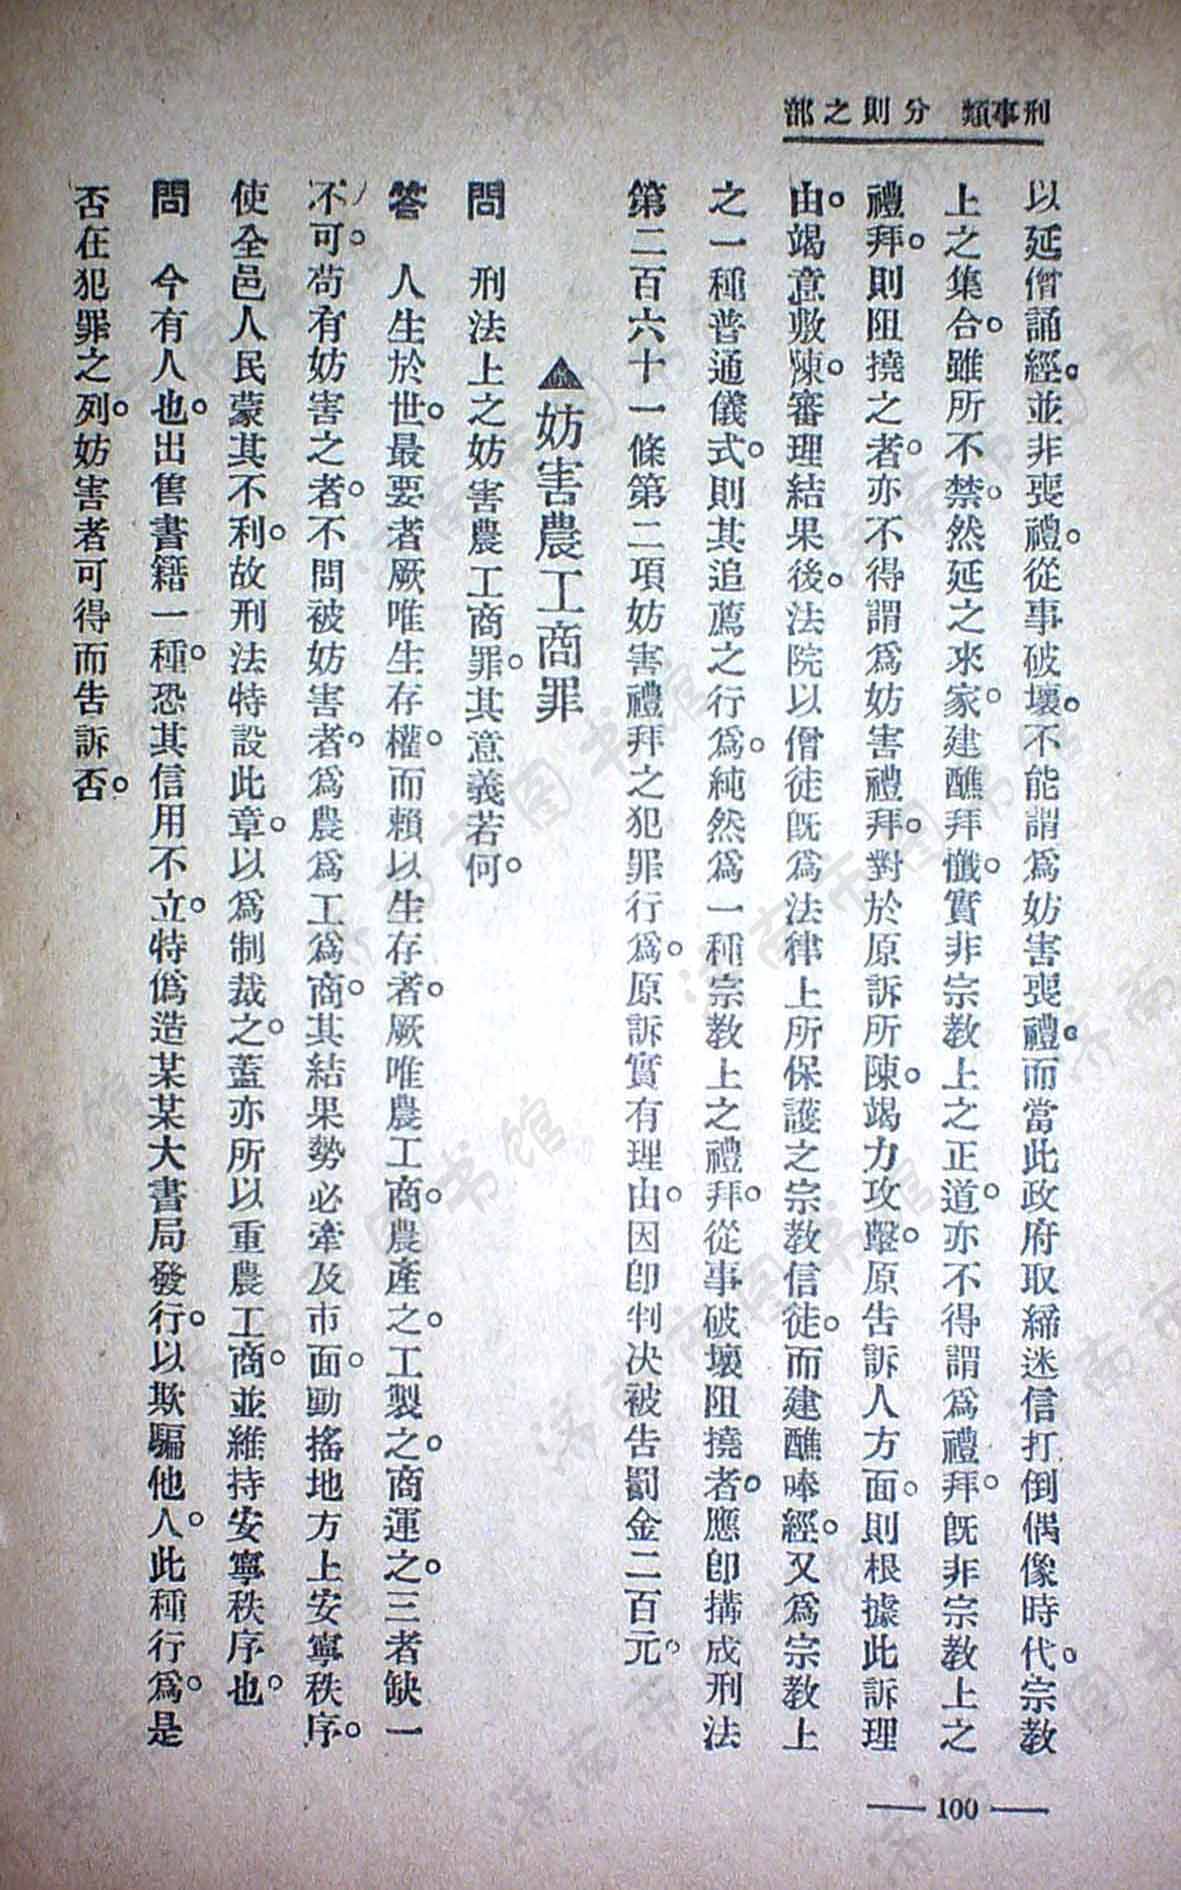 刑事類　分則之部
以延僧誦經。並非喪禮。從事破壞。不能謂爲妨害喪禮。而當此政府取締迷信打倒偶像時代。宗教
上之集合。雖所不禁。然延之來家。建醮拜懺。實非宗教上之正道。亦不得謂爲禮拜。旣非宗教上之
禮拜。則阻撓之者。亦不得謂爲妨害禮拜。對於原訴所陳。竭力攻擊。原告訴人方面。則根據此訴理
由。竭意敷陳。審理結果後。法院以僧徒旣爲法律上所保護之宗教信徒。而建醮唪經。又爲宗教上
之一種普通儀式。則其追薦之行爲。純然爲一種宗教上之禮拜。從事破壞阻撓者。應卽搆成刑法
第二百六十一條第二項妨害禮拜之犯罪行爲。原訴實有理由。因卽判決被告罰金二百元。
▲妨害農工商罪
問　刑法上之妨害農工商罪。其意義若何。
答　人生於世。最要者厥唯生存權。而賴以生存者。厥唯農工商。農產之。工製之。商運之。三者缺一
不可。苟有妨害之者。不問被妨害者。爲農爲工爲商。其結果勢必牽及市面。動搖地方上安寧秩序。
使全邑人民蒙其不利。故刑法特設此章。以爲制裁之。蓋亦所以重農工商。並維持安寧秩序也。
問　今有人也。出售書籍一種。恐其信用不立。特僞造某某大書局發行。以欺騙他人。此種行爲。是
否在犯罪之列。妨害者可得而告訴否。
100